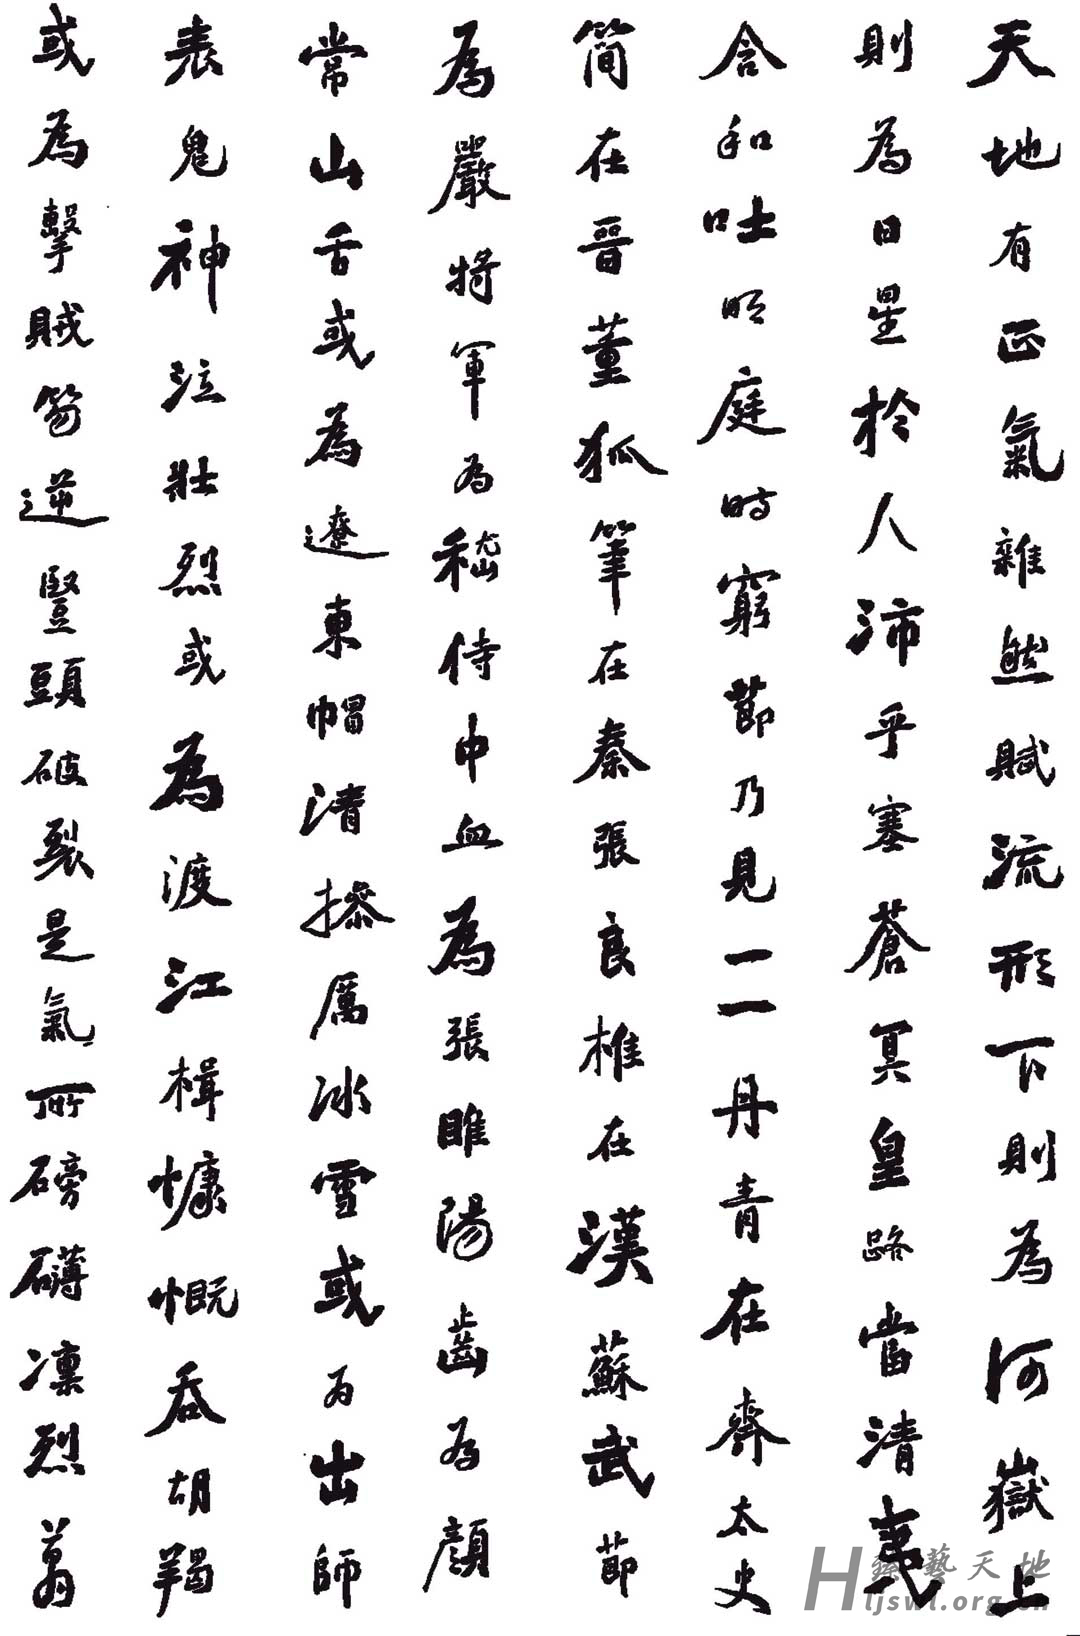 天地有正氣雜然賦流形下則為河嶽上
則為日星於人沛乎塞蒼冥皇路當清夷
含和吐明庭時窮節乃見一一丹青在齊太史
簡在晉董狐筆在秦張良椎在漢蘇武節
為嚴將軍為嵇侍中血為張睢陽齒為顏
常山舌或為遼東帽清操厲冰雪或為出師
表鬼神泣壯烈或為渡江楫慷慨吞胡羯
或為擊賊笏逆豎頭破裂是氣所磅礴凜烈萬
藝天地
Hljswl.org.cn